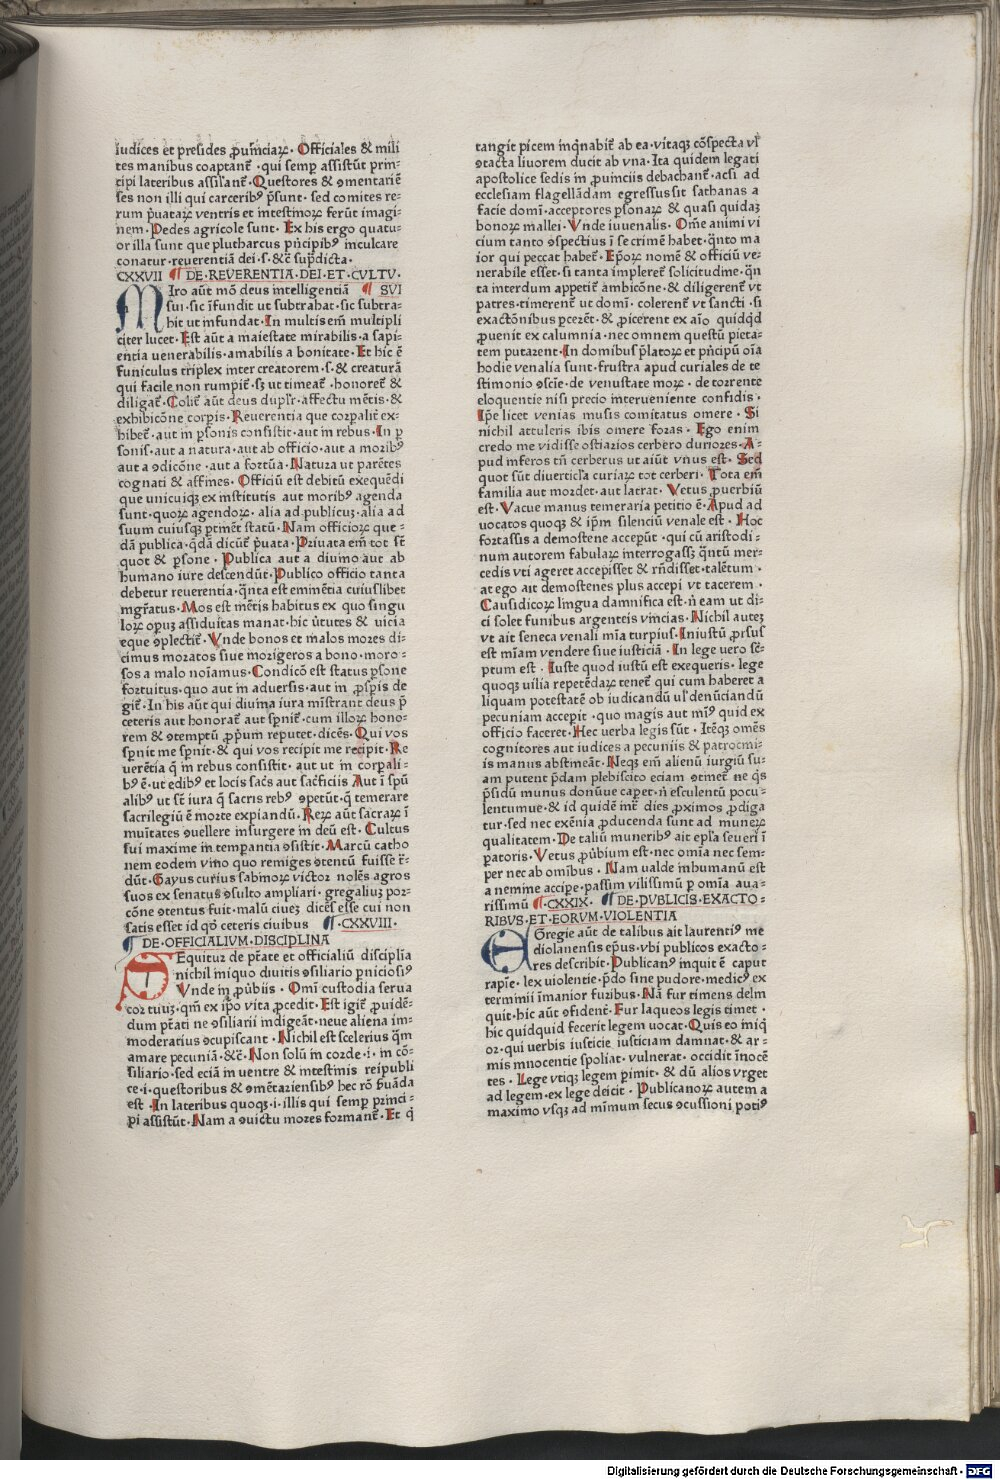 iudices et presides ꝓuīnciaꝝ· Officiales & mili
tes manibus coaptanẽ· qui semꝑ assistūt prin⸗
cipi lateribus assilanẽ· Questores & ꝯmentariē
ses non illi qui carceribꝰ p̄sunt· sed comites re⸗
rum p̄uataꝝ ventris et intestinoꝝ ferūt imagi⸗
nem· Pedes agricole sunt· Ex his ergo quatu⸗
or illa sunt que plutharcus pn̄cipibꝰ inculcare
conatur· reuerentiā dei·s·&c̄ sup̄dicta·
CXXVII ¶ DE·REVERENTIA·DEI·ET·CVLTV·
MIro aūt mō deus intelligentiā ¶ SVI
sui·sic īfundit ut subtrahat·sic subtra⸗
hit ut infundat·In multis em̄ multipli
citer lucet·Est aūt a maiestate mirabilis·a sapi⸗
entia uenerabilis·amabilis a bonitate·Et hic ē
funiculus triplex inter creatorem·s·& creaturā
qui facile non rumpit᷒·sꝫ ut timeat᷒·honoret᷒ &
diligat᷒·Colit᷒ aūt deus dupl̄r·affectu mētis·&
exhibicōne corp̄is·Reuerentia que corꝑalit᷒ ex⸗
hibet᷒·aut in ꝑsonis consistit·aut in rebus·In ꝑ
sonis·aut a natura·aut ab officio·aut a moribꝰ
aut a ꝯdicōne·aut a fortūa·Natura ut parētes
cognati & affines·Officiū est debitū exequēdi
que unicuiqꝫ ex institutis aut moribꝰ agenda
sunt·quoꝝ agendoꝝ·alia ad publicuꝫ·alia ad
suum cuiusqꝫ ꝑtinēt statū·Nam officioꝝ que⸗
dā publica·q̄dā dicūt᷒ p̄uata·Priuata em̄ tot sт̄
quot & ꝑsone·Publica aut a diuino aut ab
humano iure descendūt·Publico officio tanta
debetur reuerentia·q̄nta est eminētia cuiuslibet
mgr̄atus·Mos est mētis habitus ex quo singu
loꝝ opuꝫ assiduitas manat·hic ūtutes & uicia
eque ꝯplectit᷒·Vnde bonos et malos mores di⸗
cimus moratos siue morigeros a bono·moro⸗
sos a malo noīamus·Condicō est status ꝑsone
fortuitus·quo aut in aduersis·aut in ꝓsꝑis de
git᷒·In his aūt qui diuina iura mīstrant deus p̄
ceteris aut honorat᷒ aut sꝑnit᷒·cum illoꝝ hono⸗
rem & ꝯtemptū ꝓp̄um reputet·dicēs·Qui vos
sꝑnit me sꝑnit·& qui vos recipit me recipit·Re
uerētia q̄ in rebus consistit·aut ut in corꝑali⸗
bꝰ ē·ut edibꝰ et locis sac̄s aut sac̄ficiis Aut ī spū
alibꝰ ut sт̄ iura q̄ sacris rebꝰ ꝯpetūt·q̄ temerare
sacrilegiū ē morte expiandū·Reꝝ aūt sacraꝝ ī
mūitates ꝯuellere insurgere in deū est·Cultus
sui maxime in temꝑantia ꝯsistit·Marcū catho
nem eodem vino quo remiges ꝯtentū fuisse r̄⸗
dūt·Gayus curius sabinoꝝ victor nolēs agros
suos ex senatus ꝯsulto ampliari·gregaliuꝫ por⸗
cōne ꝯtentus fuit·malū ciueꝫ dicēs esse cui non
satis esset id qd̄ ceteris ciuibus ¶·CXXVIII·
¶ DE·OFFICIALIVM·DISCIPLINA
SEquitur de pт̄ate et officialiū disciplīa
nichil iniquo diuitis ꝯsiliario ꝑniciosiꝰ
Vnde in ꝓūbiis·Omī custodia serua
cor tuuꝫ·qm̄ ex ip̄o vita ꝓcedit·Est igit᷒ ꝓuidē⸗
dum pт̄ati ne ꝯsiliarii indigeāt·neue aliena im⸗
moderatius ꝯcupiscant·Nichil est scelerius q̄m
amare pecuniā·&c̄·Non solū in corde·i·in cō⸗
siliario·sed eciā in uentre & intestinis reipubli
ce·i·questoribus & ꝯmētariensibꝰ hec rō ẜuāda
est·In lateribus quoqꝫ·i·illis qui semꝑ princi⸗
pi assistūt·Nam a ꝯuictu mores formant᷒·Et q̄
tangit picem inq̄nabit᷒ ab ea·vitaqꝫ cōspecta vl̄
ꝯtacta liuorem ducit ab vna·Ita quidem legati
apostolice sedis in ꝓuinciis debachant᷒·acsi ad
ecclesiam flagellādam egressus sit sathanas a
facie domī·acceptores ꝑsonaꝝ & quasi quidaꝫ
bonoꝝ mallei·Vnde iuuenalis·Om̄e animi vi
cium tanto ꝯspectius ī se crimē habet·q̄nto ma
ior qui peccat habet᷒·Ep̄oꝝ nomē & officiū ve⸗
nerabile esset·si tanta impleret᷒ solicitudine·q̄n
ta interdum appetit᷒ ambicōne·& diligerent᷒ vt
patres·timerent᷒ ut domī·colerent᷒ vt sancti·si
exactōnibus ꝑcerēt·& ꝓicerent ex aīo quidq̄d
ꝓuenit ex calumnia·nec omnem questū pieta⸗
tem putarent·In domibus p̄latoꝝ et pn̄cipū oīa
hodie venalia sunt·frustra apud curiales de te
stimonio ꝯscīe·de venustate moꝝ·de torrente
eloquentie nisi precio interueniente confidis·
Ip̄e licet venias musis comitatus omere·Si
nichil attuleris ibis omere foras·Ego enim
credo me vidisse ostiarios cerbero duriores·A⸗
pud inferos tn̄ cerberus ut aiūt vnus est·Sed
quot sūt diuerticl̄a curiaꝝ tot cerberi·Tota em̄
familia aut mordet·aut latrat·Vetus ꝓuerbiū
est·Vacue manus temeraria petitio ē·Apud ad
uocatos quoqꝫ & ip̄m silenciū venale est·Hoc
fortassis a demostene accepūt·qui cū aristodi⸗
mum autorem fabulaꝝ interrogassꝫ q̄ntū mer⸗
cedis vti ageret accepisset & rn̄disset·talētum·
at ego ait demostenes plus accepi vt tacerem·
Causidicoꝝ lingua damnifica est·n̄ eam ut di⸗
ci solet funibus argenteis vincias·Nichil auteꝫ
vt ait seneca venali mīa turpius·Iniustū ꝓrsus
est mīam vendere siue iusticiā·In lege uero sc̄⸗
ptum est·Iuste quod iustū est exequeris·lege
quoqꝫ uilia repetēdaꝝ tenet᷒ qui cum haberet a
liquam potestatē ob iudicandū ul̄ denūciandū
pecuniam accepit·quo magis aut mīꝰ quid ex
officio faceret·Hec uerba legis sūt·Itēqꝫ omēs
cognitores aut iudices a pecuniis & patrocini⸗
is manus abstineāt·Neqꝫ em̄ alienū iurgiū su⸗
am putent p̄dam plebiscito eciam ꝯtinet᷒ ne q̄s
p̄sidū munus donūue capet·n̄ esculentū pocu⸗
lentumue·& id quidē int᷒ dies ꝓximos ꝓdiga
tur·sed nec exēnia ꝓducenda sunt ad muneꝝ
qualitatem·De taliū muneribꝰ ait epl̄a seueri ī
ꝑatoris·Vetus ꝓūbium est·nec omīa nec sem⸗
per nec ab omibus·Nam ualde inhumanū est
a nemine accipe·passim vilissimū ꝑ omīa aua⸗
rissimū ¶·CXXIX· ¶ DE·PVBLICIS·EXACTO⸗
RIBVS·ET·EORVM·VIOLENTIA
EGregie aūt de talibus ait laurentiꝰ me
diolanensis ep̄us·vbi publicos exacto⸗
res describit·Publicanꝰ inquit ē caput
rapīe·lex uiolentie·p̄do sine pudore·medicꝰ ex
terminii īmanior furibus·Nā fur timens delin
quit·hic aūt ꝯfident·Fur laqueos legis timet·
hic quidquid fecerit legem uocat·Quis eo iniq̄
or·qui uerbis iusticie iusticiam damnat·& ar⸗
mis innocentie spoliat·vulnerat·occidit īnocē
tes·Lege vtiqꝫ legem ꝑimit·& dū alios vrget
ad legem·ex lege deicit·Publicanoꝝ autem a
maximo vsqꝫ ad mīmum secus ꝯcussioni potiꝰ
Digitalisierung gefördert durch die Deutsche Forschungsgemeinschaft - DFG